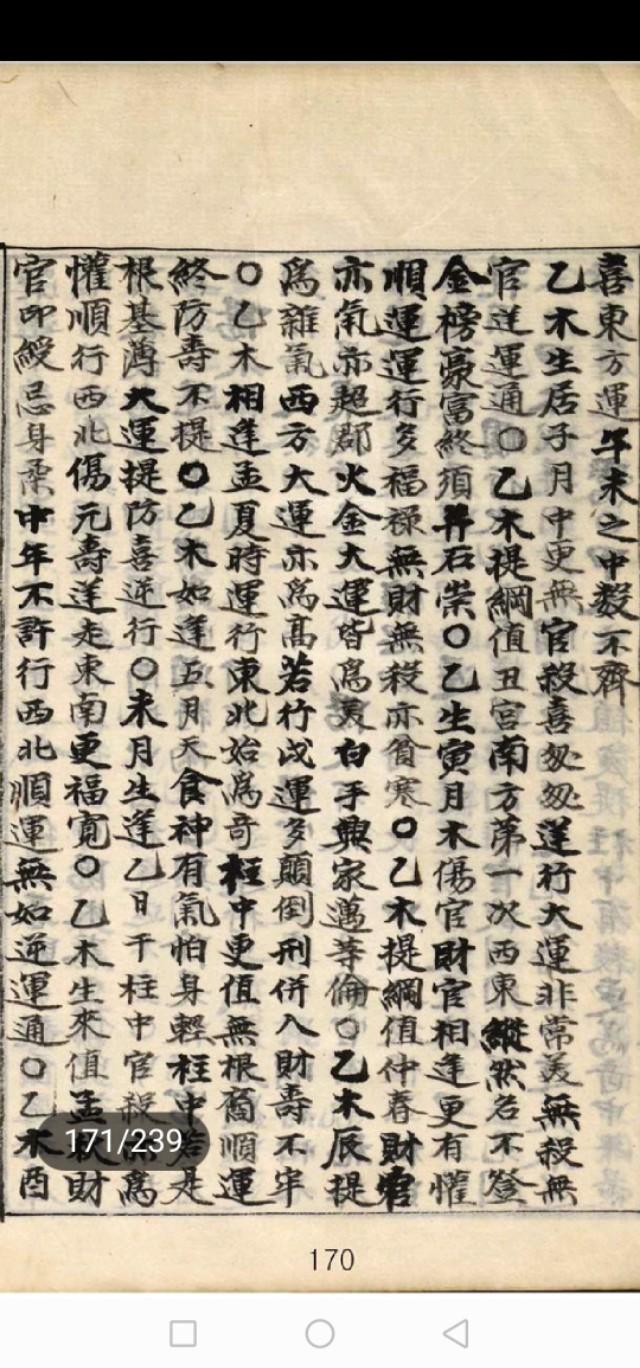 喜東方運午未之中数不齊
乙木生居子月中更無官殺喜匆匆逆行大運非常美無殺無
官逆運通〇乙木提綱值丑宮南方第一次西東縱然名不登
金榜豪富終須筭石崇〇乙生寅月木傷官財官相逢更有懽
順運運行多福禄無財無殺亦貧寒〇乙木提綱值仲春財官
亦氣亦超郡火金大運皆為美白手興家邁等倫〇乙木辰提
為雜氣西方大運亦為高若行戌運多顛倒刑併入財壽不牢
〇乙木相逢孟夏時運行東北始為奇柱中更值無根裔順運
終防壽不提〇乙木如逢五月天食神有氣怕身輕柱中若是
根基薄大運提防喜逆行〇未月生逢乙日干柱中官殺為
懽順行西北傷元壽逆走東南更福寛〇乙木生來值孟秋財
官印綬忌身柔中年不許行西北順運無如逆運通〇乙木酉
171/239
170